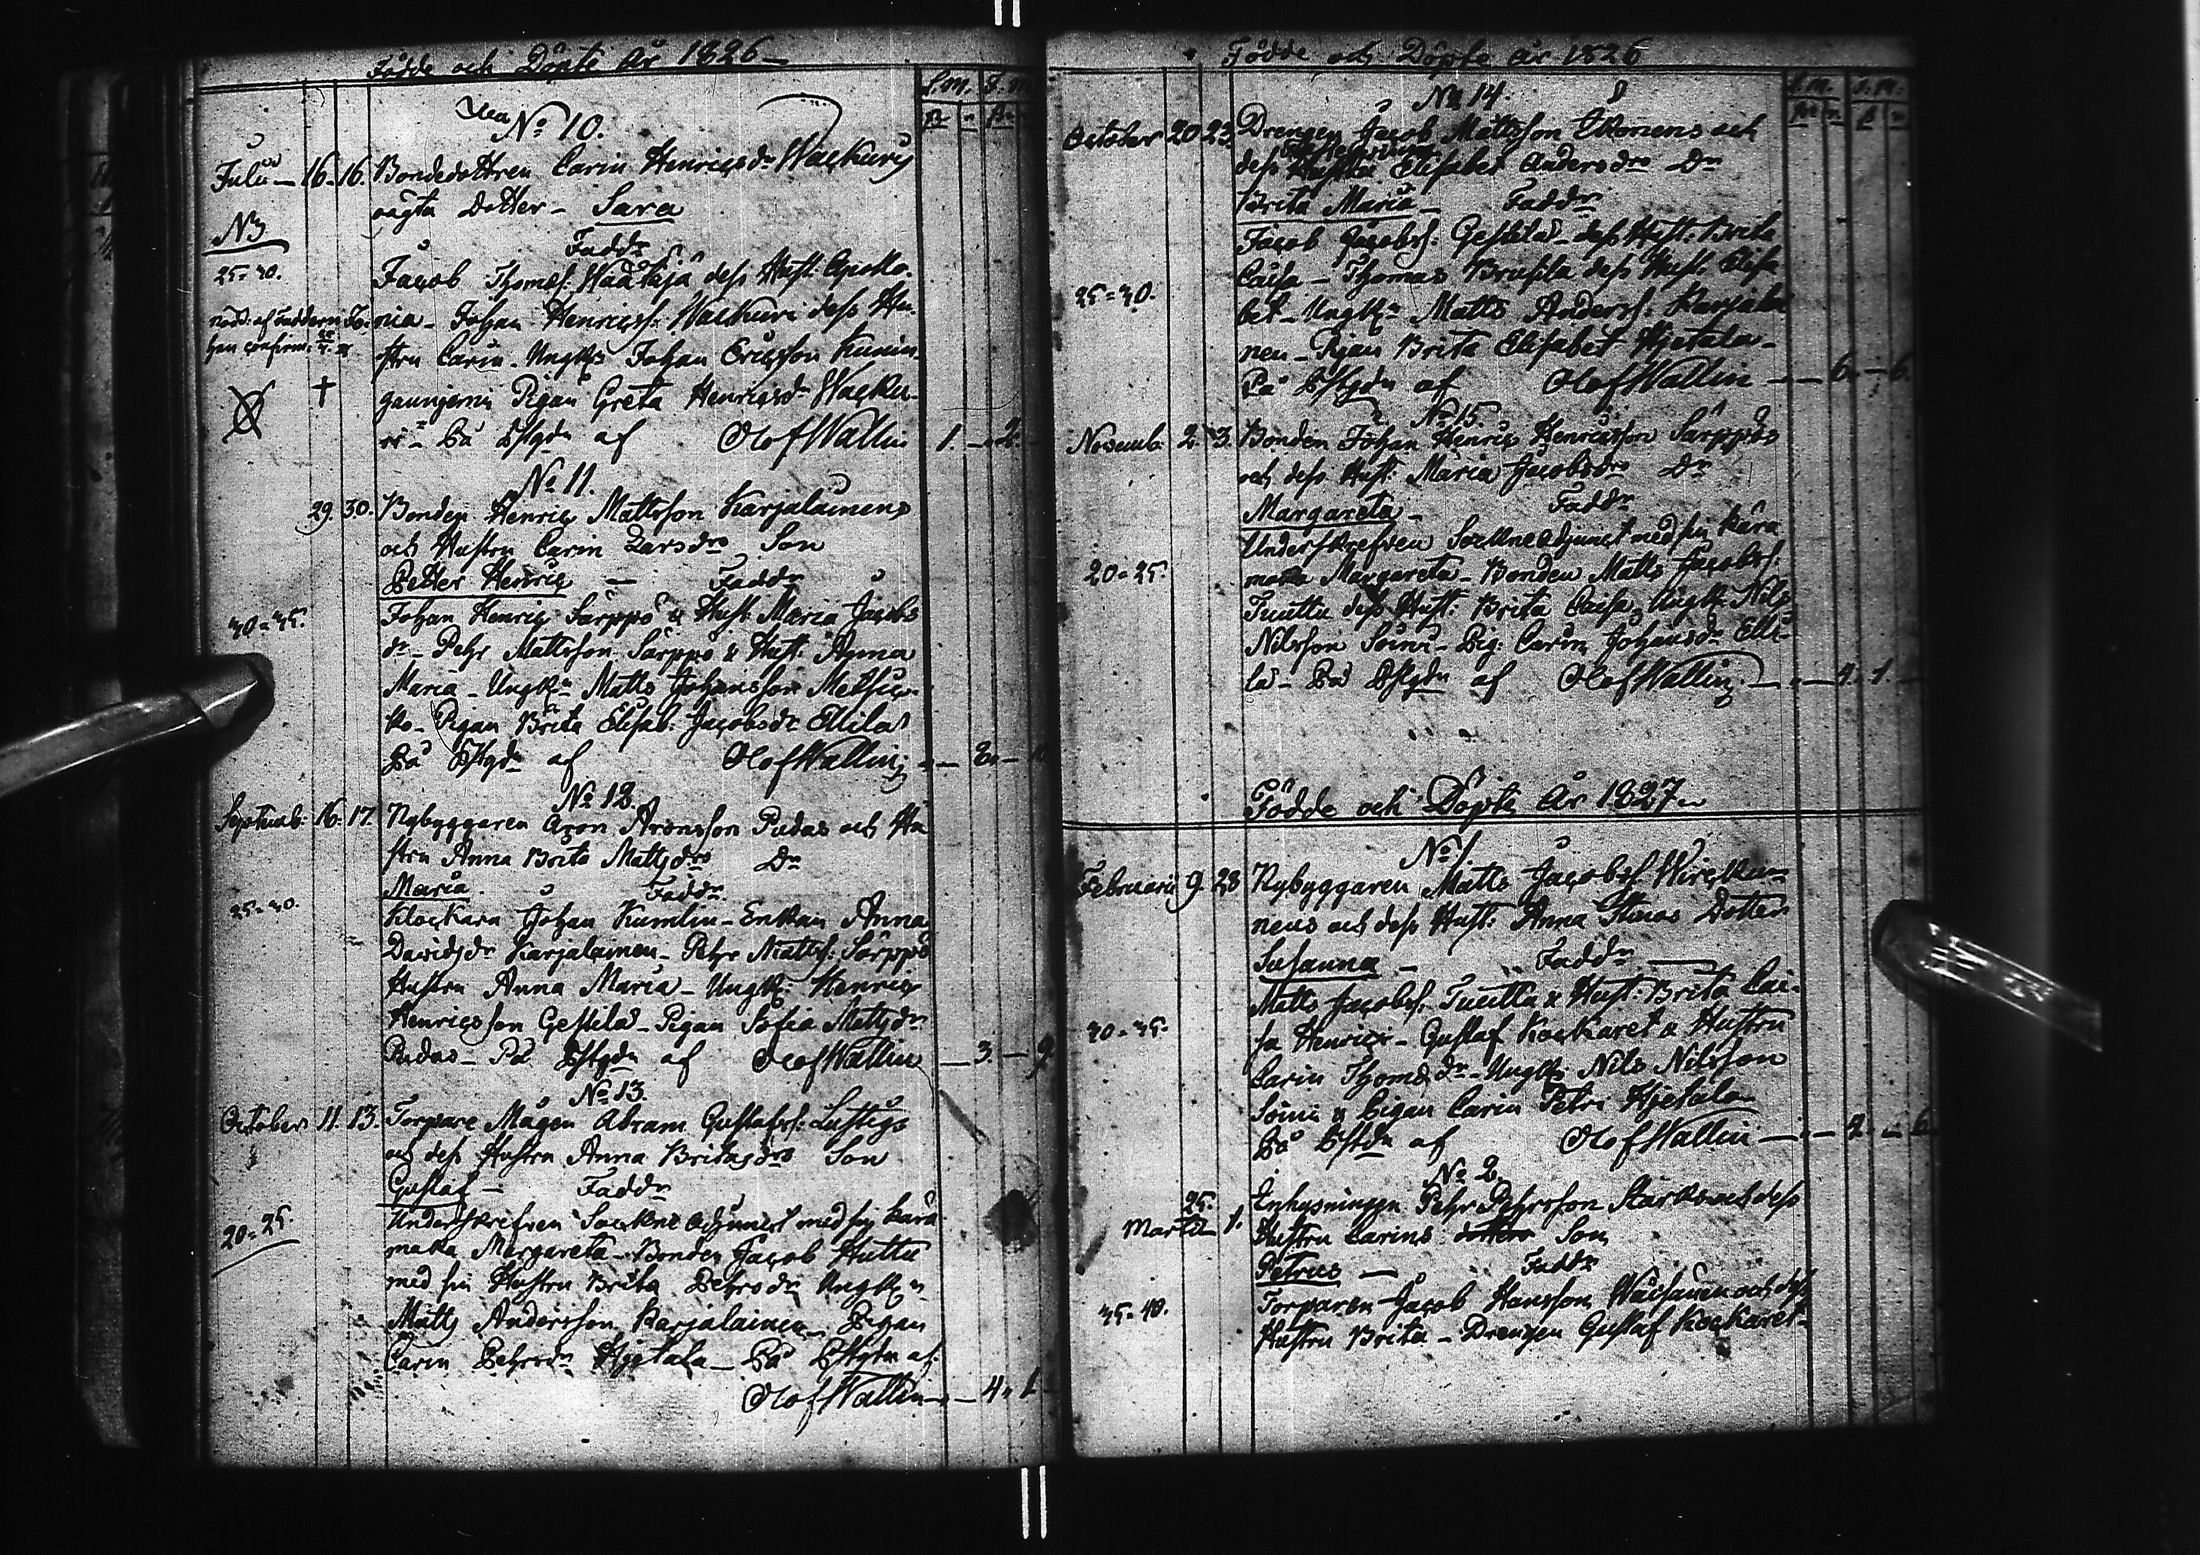 Födde och Döpte År 1826
S.M. S.M.
No 10.
Julii 16. 16. Bondedottren Carin Henricsdr Wackuris
oägta Dotter - Sara
NB
Faddr
25-30.
Jacob Thomæs: Haataja dess Hust: Apollo-
nia - Johan Henricss: Wackuri dess Hu-
stru Carin. Ungkn Johan Ericsson Kunin
Pigan Greta Henricsdr Wacku-
ri - På Estgdn af Olof Wallin 1. - 2.
No 11.
29. 30. Bonden Henric Mattsson Karjalainens
och Hustru Carin Larsdrs Son
Petter Henric - Faddr
30-35.
Johan Henric Särppö & Hust. Maria Jacobs
dr - Pehr Mattsson Särppö & Hust: Anna
Maria - Ungkn Matts Johansson
ko - Pigan Brita Elisab: Jacobsdr Ellilä
På Estgdn af Olof Wallin
No 12.
Septemb: 16. 17. Nybyggaren Aron Aronsson Pudas och Hu
stru Anna Brita Mattsdrs Dr
Maria. Faddr
25-30.
Klockaren Johan Kumlin - Enkan Anna
Davidsdr Karjalainen - Pehr Mattss: Särppö
Hustru Anna Maria - Ungk: Henric
Henricsson Gestilä - Pigan Sofia Mattsdr
Pudas - På Estgdn af Olof Wallin - 3. - 9.
No 13.
October 11. 13. Torpare Mågen Abram Gustafss: Lustigs
och dess Hustru Anna Britasdrs Son
Gustaf - Faddr
20-25.
Underskrefven Sockne Adjunct med sin kära
maka Margareta - Bonden Jacob Huttu
med sin Hustru Brita Pehrsdr Ungkn
Matts Andersson Karjalainen - Pigan
Carin Pehrsdr Hjetala - På Estgdn af
Olof Wallin - 4. 1.
Födde och Döpte År 1826
S.M. S.M.
No 14.
October 20 23. Drengen Jacob Mattsson Ikonens och
dess Elisabet Andersdrs Dr
Brita Maria - Faddr
Jacob Jacobss: Gestilä - dess Hust: Brita
Caisa - Thomas dess Hust: Elisa
25-30.
bet - Ungkn Matts Anderss: Karjalai
nen - Pigan Brita Elisabet Hjetala -
På Estgdn af Olof Wallin - 6. - 6.
No 15.
Novemb: 2. 3. Bonden Johan Henric Henricsson Särppös
och dess Hust: Maria Jacobsdrs Dr
Margareta - Faddr
Underskrefven Sockne Adjunct med sin kära
20-25.
maka Margareta - Bonden Matts Jacobss:
Tuutti dess Hust: Brita Caisa, Ungk: Nils
Nilsson Soini - Pig: Carin Johansdr Elli-
lä - På Estgdn af Olof Wallin
Födde och Döpte År 1827
No 1.
Februarii 9. 28 Nybyggaren Matts Jacobss
nens och dess Hust: Anna Dotter
Susanna - Faddr
Matts Jacobss: Tuutti & Hust: Brita Cai-
30-35.
sa Henrics - Gustaf Kockaret & Hustru
Carin Thomædr - Ungk: Nils Nilsson
Soini & Pigan Carin Petri Hjetala
På Estgdn af Olof Wallin - 2. - 6.
No 2
25. Inhysningen Pehr Pehrsson och dess
Martii 1. Hustru Carins Son
Petrus - Faddr
35-40.
Torparen Jacob Hansson Wäisänen och dess
Hustru Brita - Drengen Gustaf Kockaret -